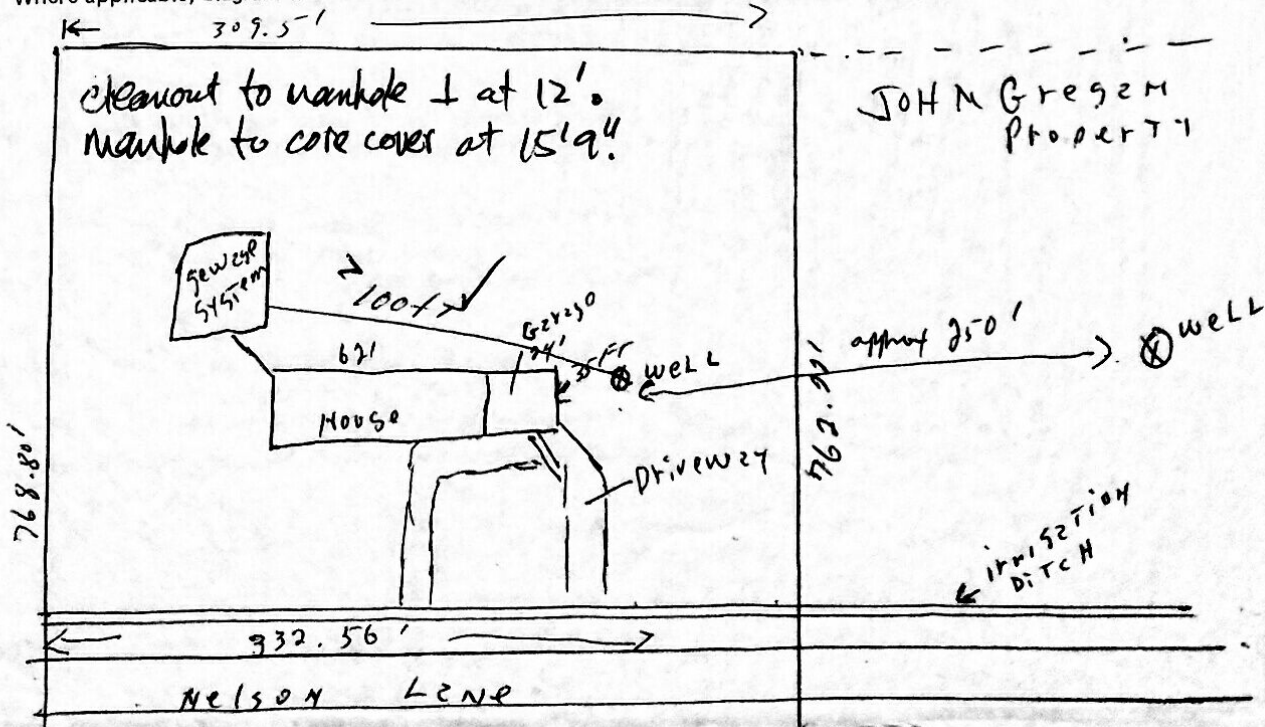 309.5'
cleanout to manhole ⊥ at 12'.
manhole to core cover at 15'9".
JOHN Gregen
Property
Sewage
System
> 100ft ✓
Garage
62'
24'
WELL
approx 250'
WELL
House
768.80'
Driveway
irrigation
Ditch
332.56'
Nelson Lane